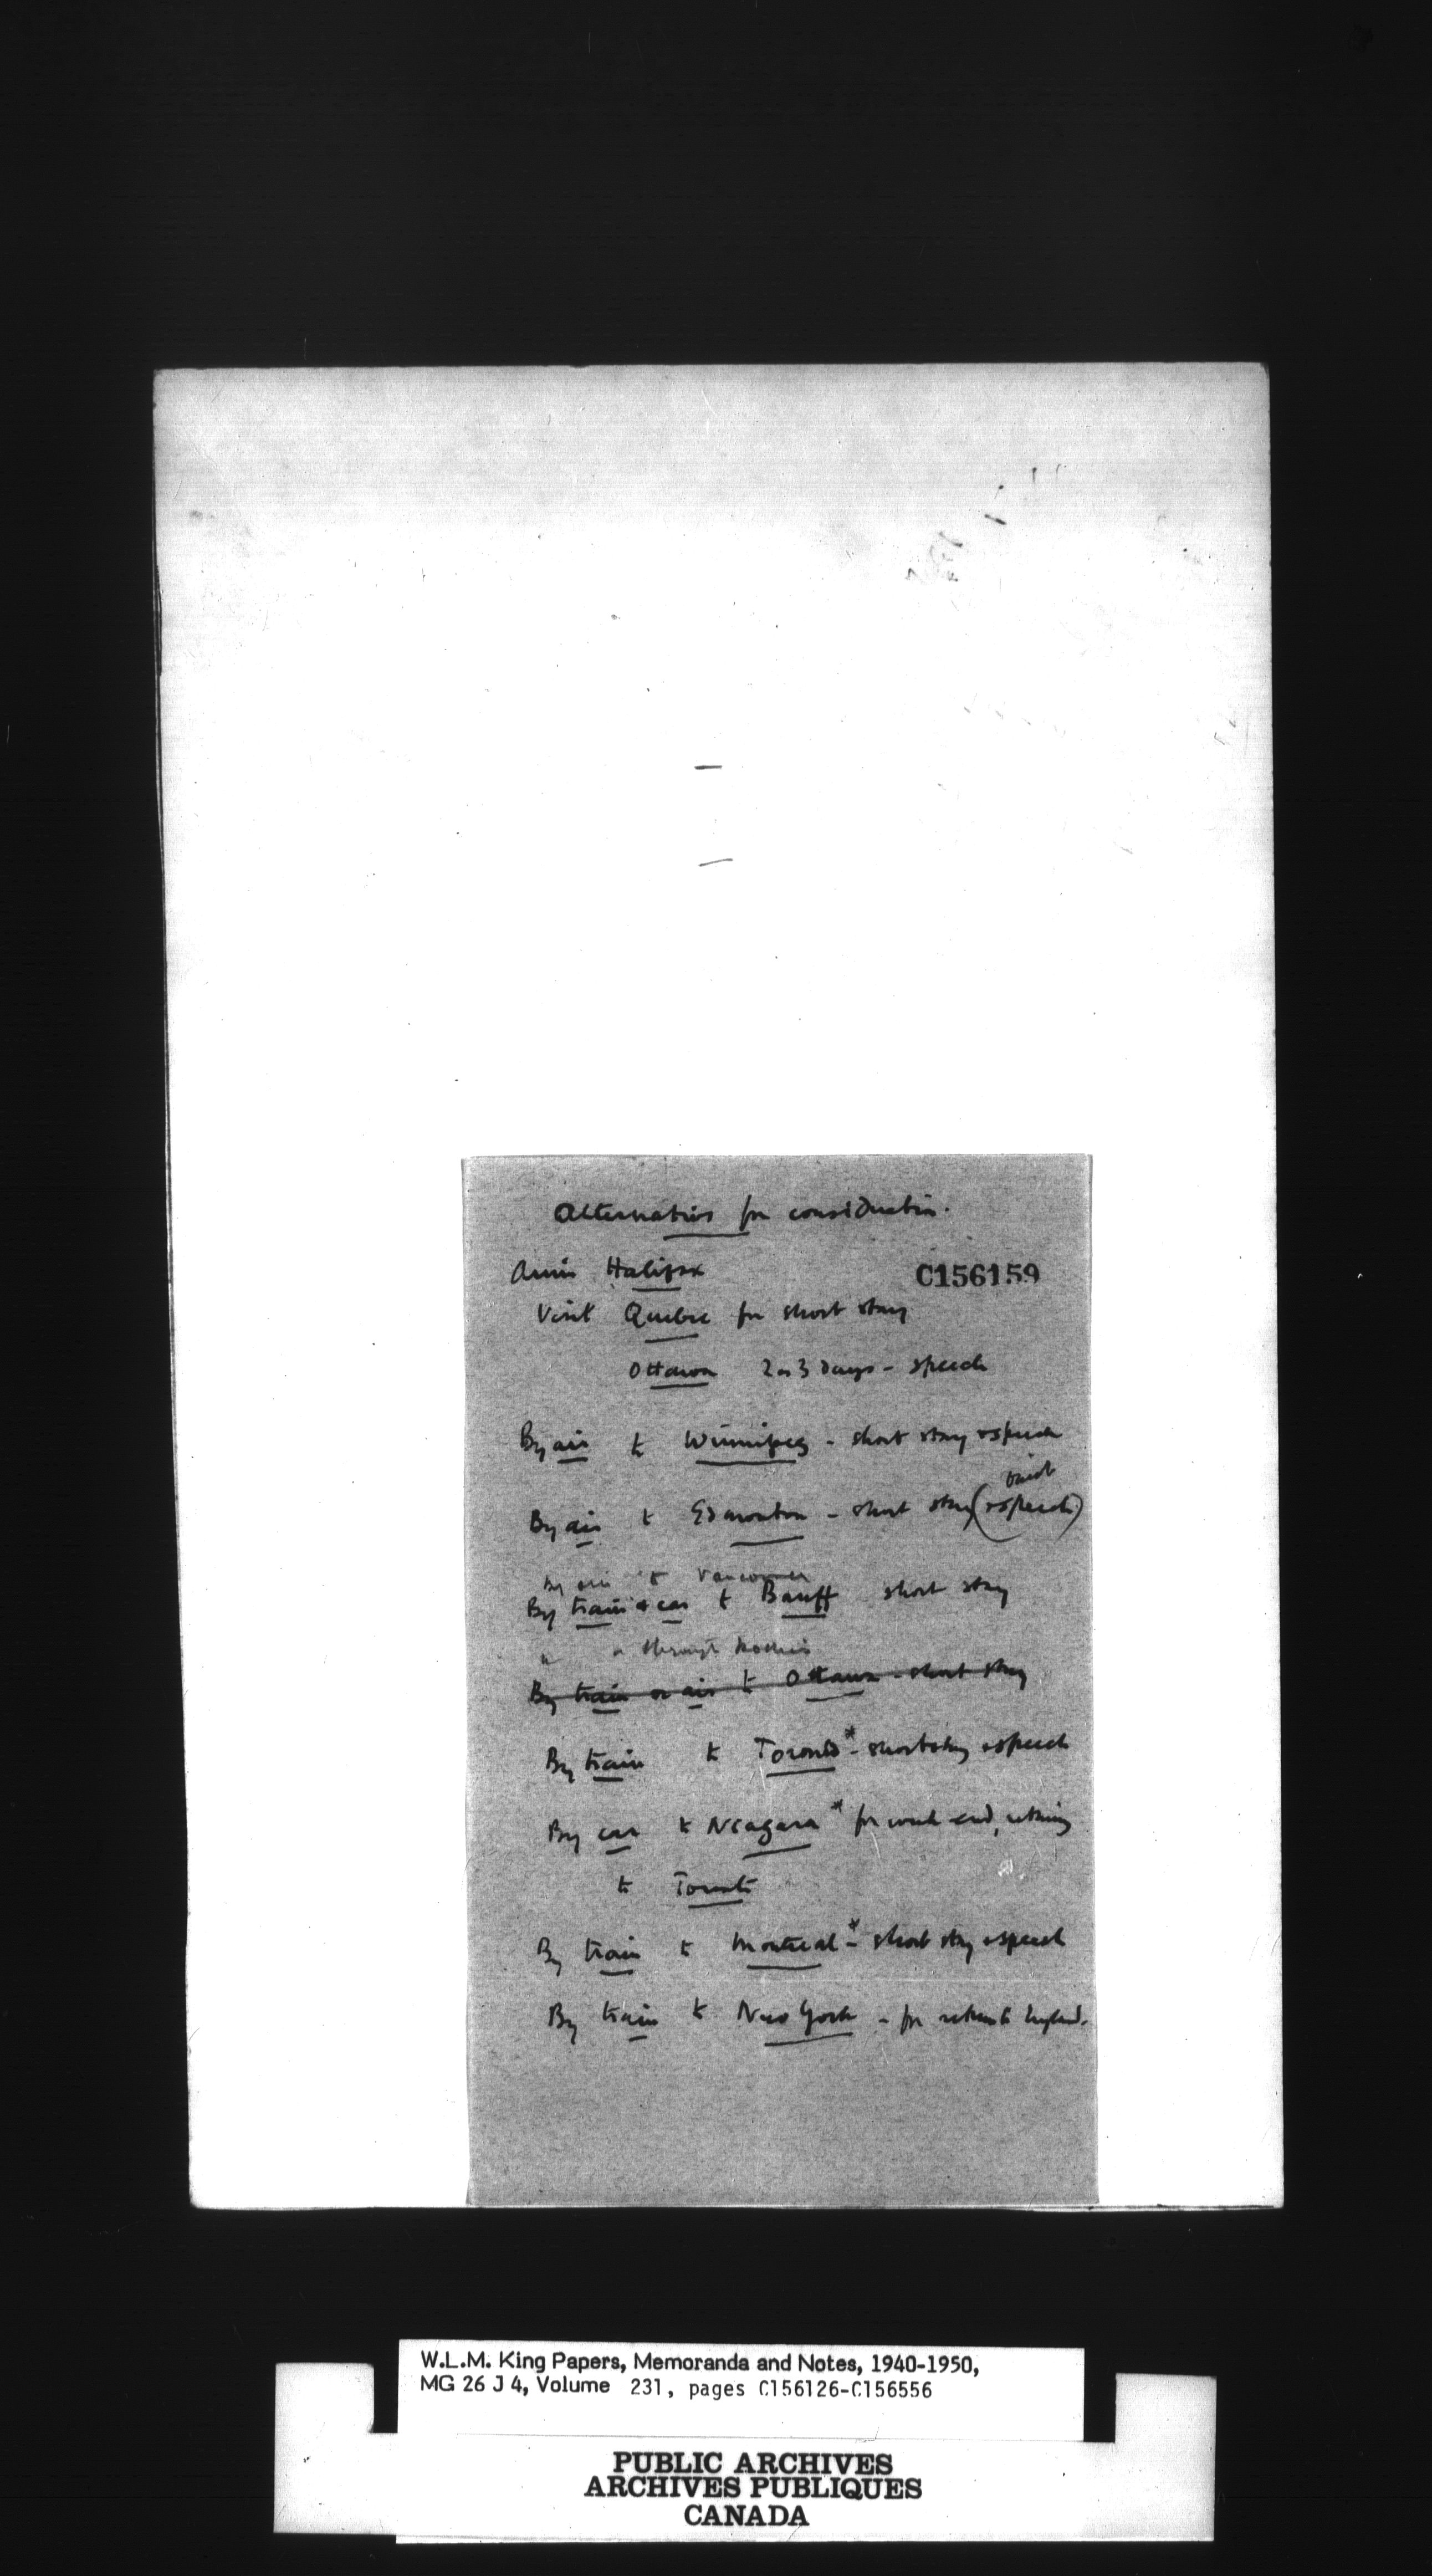 Alternatives for consideration.
Arrive Halifax
C156159
Visit Quebec for short stay
Ottawa 2 or 3 days - speech
By air to Winnipeg - short stay & speech
brief
By air to Edmonton - short stay (& speech)
By air to Vancouver
By train & car to Banff short stay
" " through Rockies
By train or air to Ottawa - short stay
By train to Toronto* - short stay & speech
By car to Niagara* for week-end, returning
to Toronto
By train to Montreal* - short stay & speech
By train to New York - for return to England.
W.L.M. King Papers, Memoranda and Notes, 1940-1950,
MG 26 J 4, Volume 231, pages C156126-C156556
PUBLIC ARCHIVES
ARCHIVES PUBLIQUES
CANADA